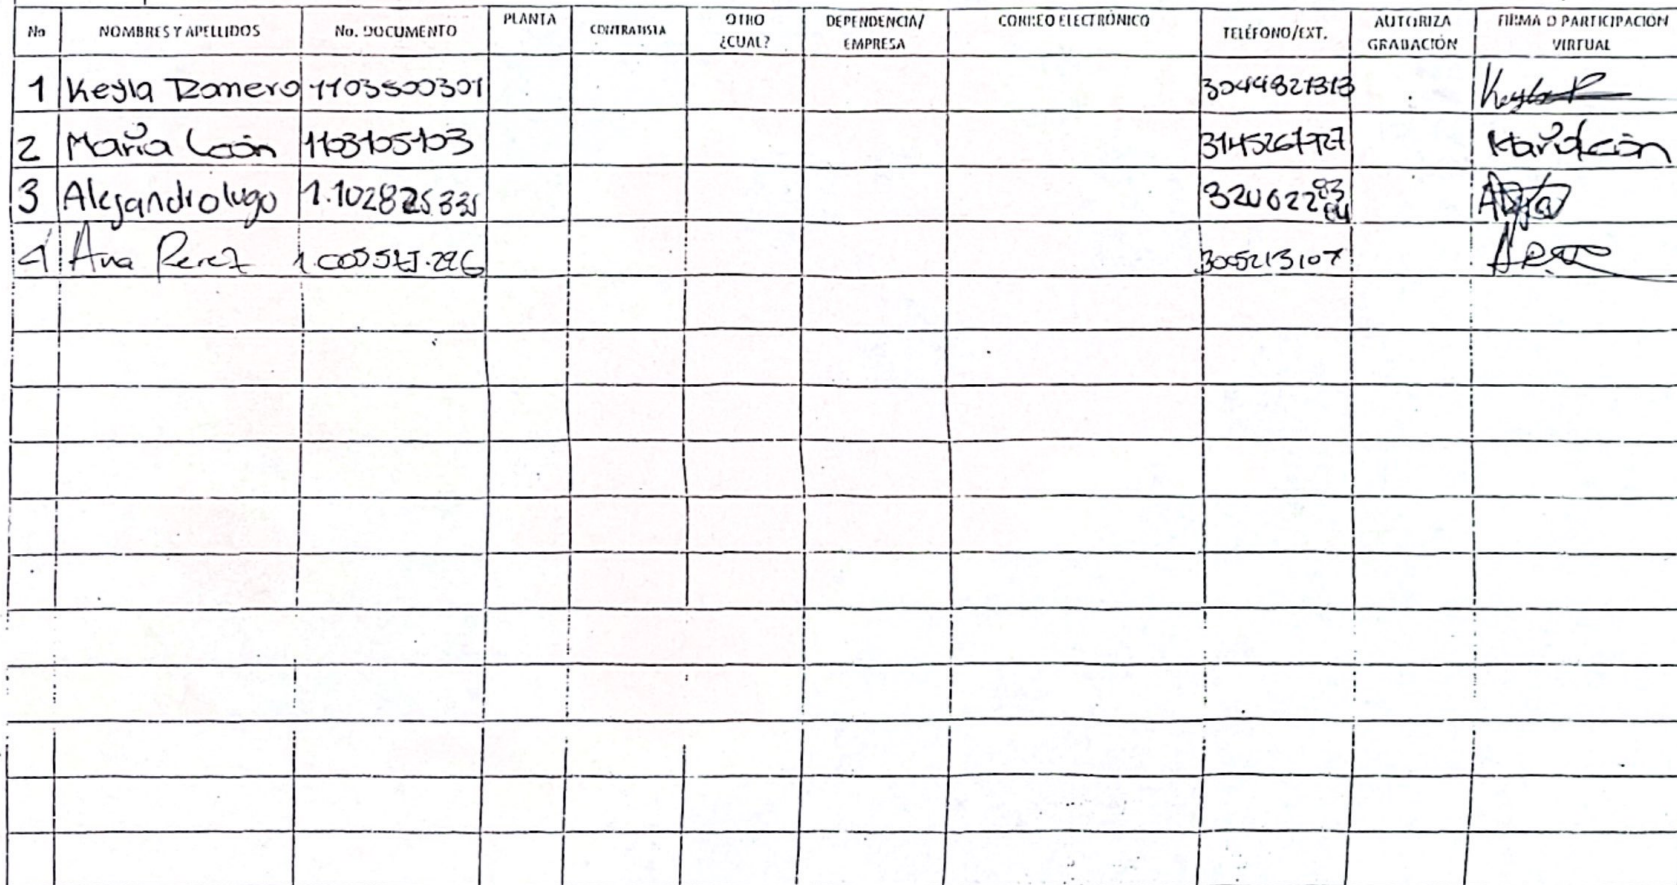 No NOMBRES Y APELLIDOS No. DOCUMENTO PLANTA CONTRATISTA OTRO ¿CUAL? DEPENDENCIA/ EMPRESA CORREO ELECTRÓNICO TELÉFONO/EXT. AUTORIZA GRABACIÓN FIRMA O PARTICIPACION VIRTUAL
1 Keyla Romero 1103500301
2 María León 1103105103 María León
3 Alejandro lugo
4 Ana Perez 3005213107